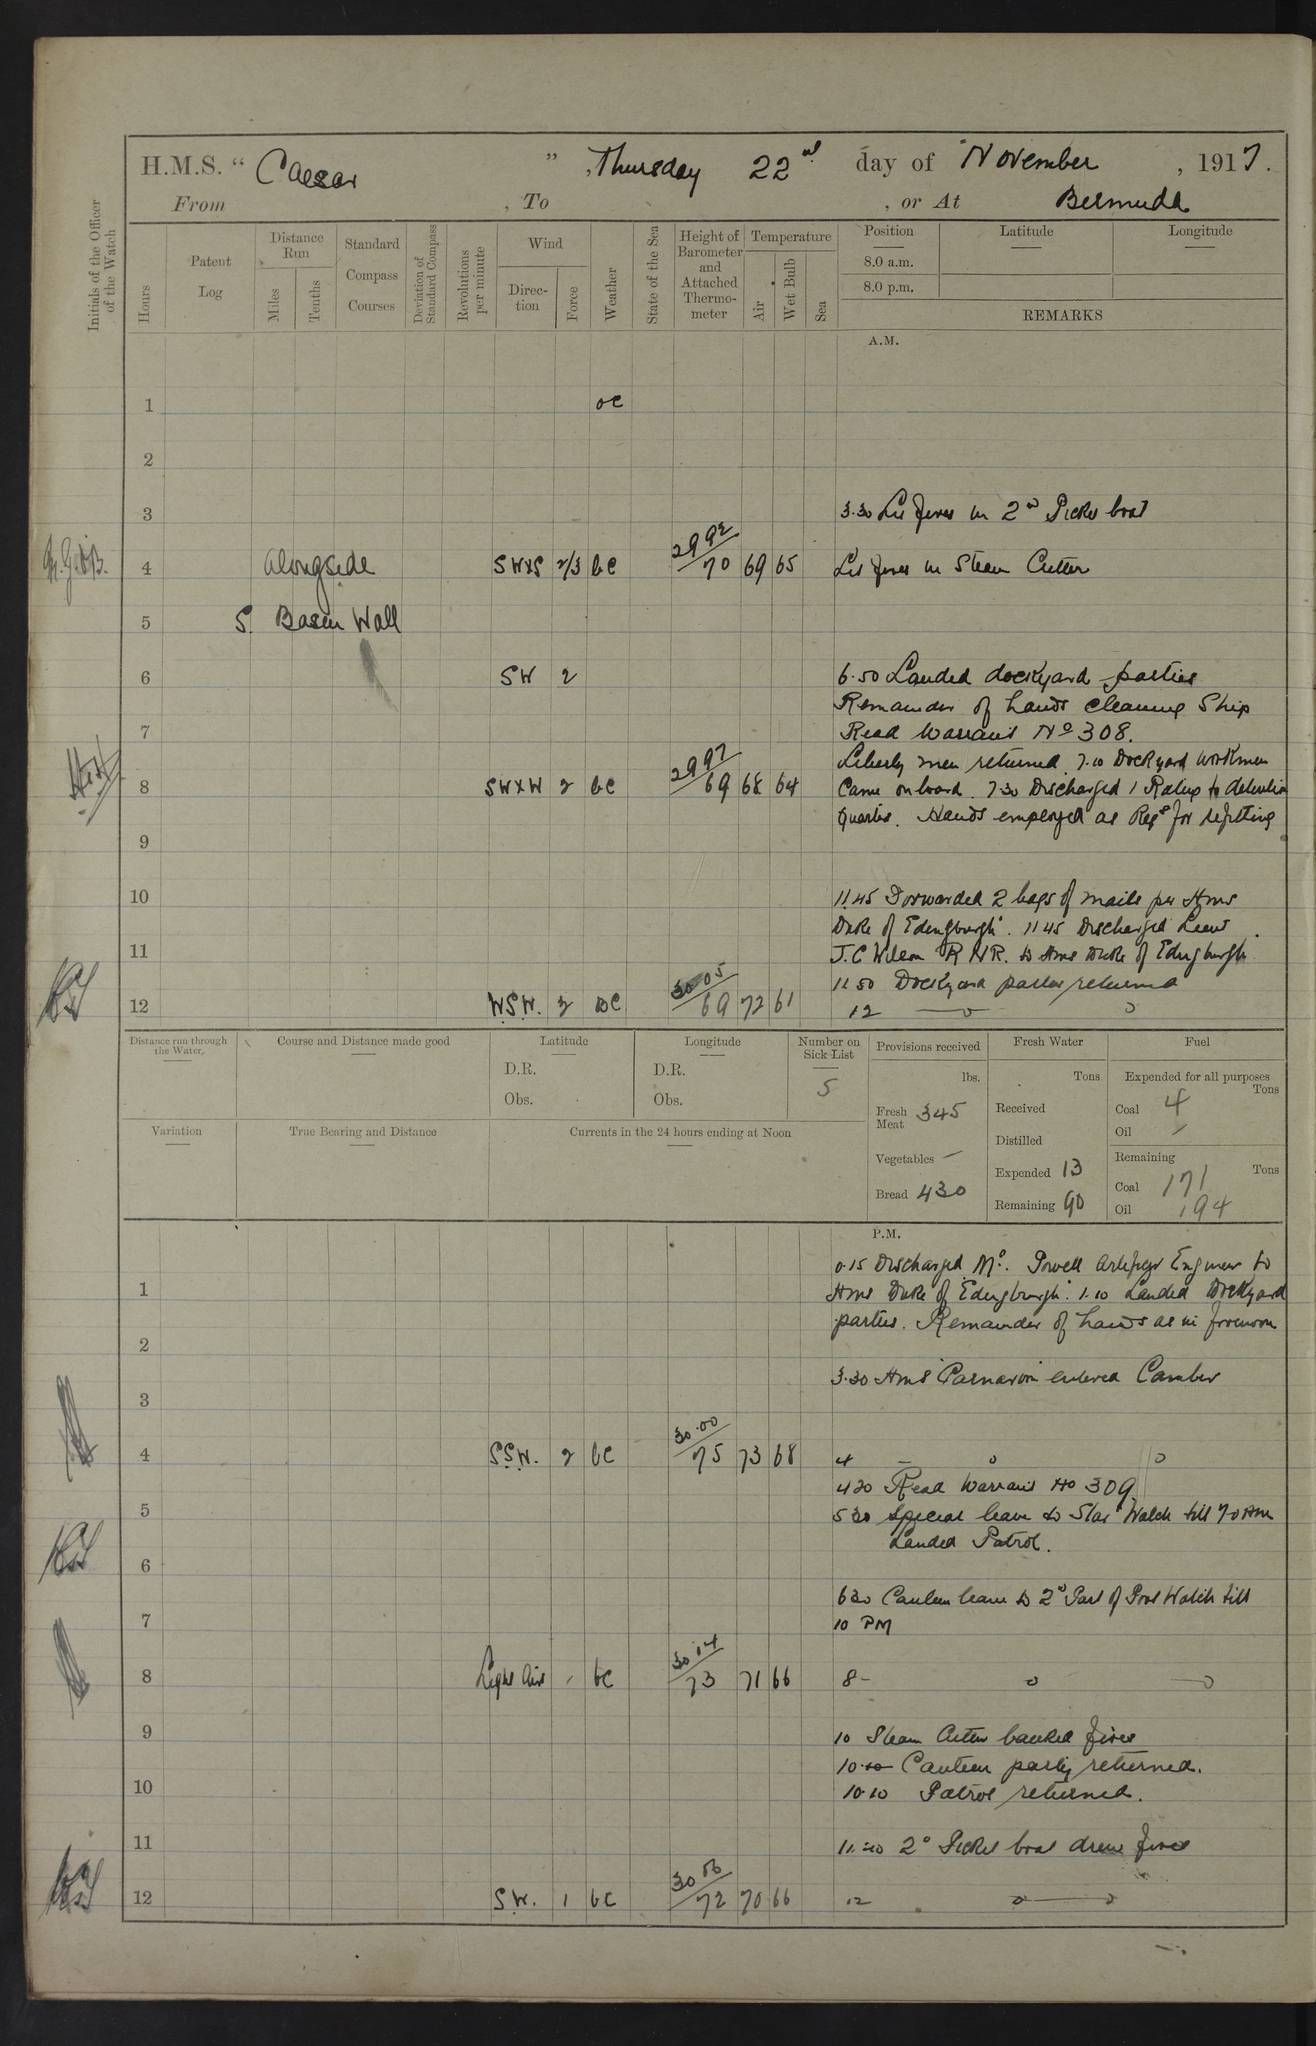 H.M.S. " Caesar ", Thursday 22nd day of November, 1917.
From , To , or At Bermuda
Initials of the Officer of the Watch
Hours
Patent Log
Distance Run
Miles
Tenths
Standard Compass Courses
Deviation of Standard Compass
Revolutions per minute
Wind
Direc-tion
Force
Weather
State of the Sea
Height of Barometer and Attached Thermo-meter
Temperature
Air
Wet Bulb
Sea
Position
8.0 a.m.
8.0 p.m.
Latitude
Longitude
REMARKS
A.M.
1 oc
2
3 3.30 Lit fires in 2nd Picket boat
4 Alongside SWxS 2/3 bc 29 92/70 69 65 Lit fires in Steam Cutter
5 S. Basin Wall
6 SW 2 6.50 Landed dockyard parties
Remainder of hands cleaning Ship
7 Read Warrant No 308.
Liberty men returned. 7.10 Dockyard workmen
8 SWxW 2 bc 29 97/69 68 64 Came onboard. 7.30 Discharged 1 Rating to detention
quarters. Hands employed as Reqd for refitting
9
10 11.45 Forwarded 2 bags of mails per Hms
Duke of Edingburgh. 11 45 Discharged Lieut
11 J.C Wilson RNR. to Hms Duke of Edingburgh
11 50 Dockyard parties returned
12 W.S.W. 2 bc 30 05/69 72 61 12
Distance run through the Water.
Course and Distance made good
Latitude
D.R.
Obs.
Longitude
D.R.
Obs.
Number on Sick List
5
Provisions received
lbs.
Fresh Meat 345
Vegetables –
Bread 430
Fresh Water
Tons
Received
Distilled
Expended 13
Remaining 90
Fuel
Expended for all purposes
Tons
Coal 4
Oil –
Remaining
Tons
Coal 171
Oil 194
Variation
True Bearing and Distance
Currents in the 24 hours ending at Noon
P.M.
0.15 Discharged Mr. Powell Artificer Engineer to
1 Hms Duke of Edingburgh. 1.10 Landed Dockyard
parties. Remainder of hands as in forenoon
2
3.30 Hms Carnarvon entered Camber
3
4 S.S.W. 2 bc 30.00/75 73 68 4
430 Read Warrant No 309
5 530 Special leave to Star Watch till 7.0 Am
Landed Patrol.
6
630 Canteen leave to 2nd Part of Port Watch till
7 10 PM
8 Light Airs - bc 30 14/73 71 66 8 -
9 10 Steam Cutter banked fires
10.10 Canteen party returned.
10 10.10 Patrol returned.
11 11.20 2nd Picket boat drew fires
12 S.W. 1 bc 72 70 66 12